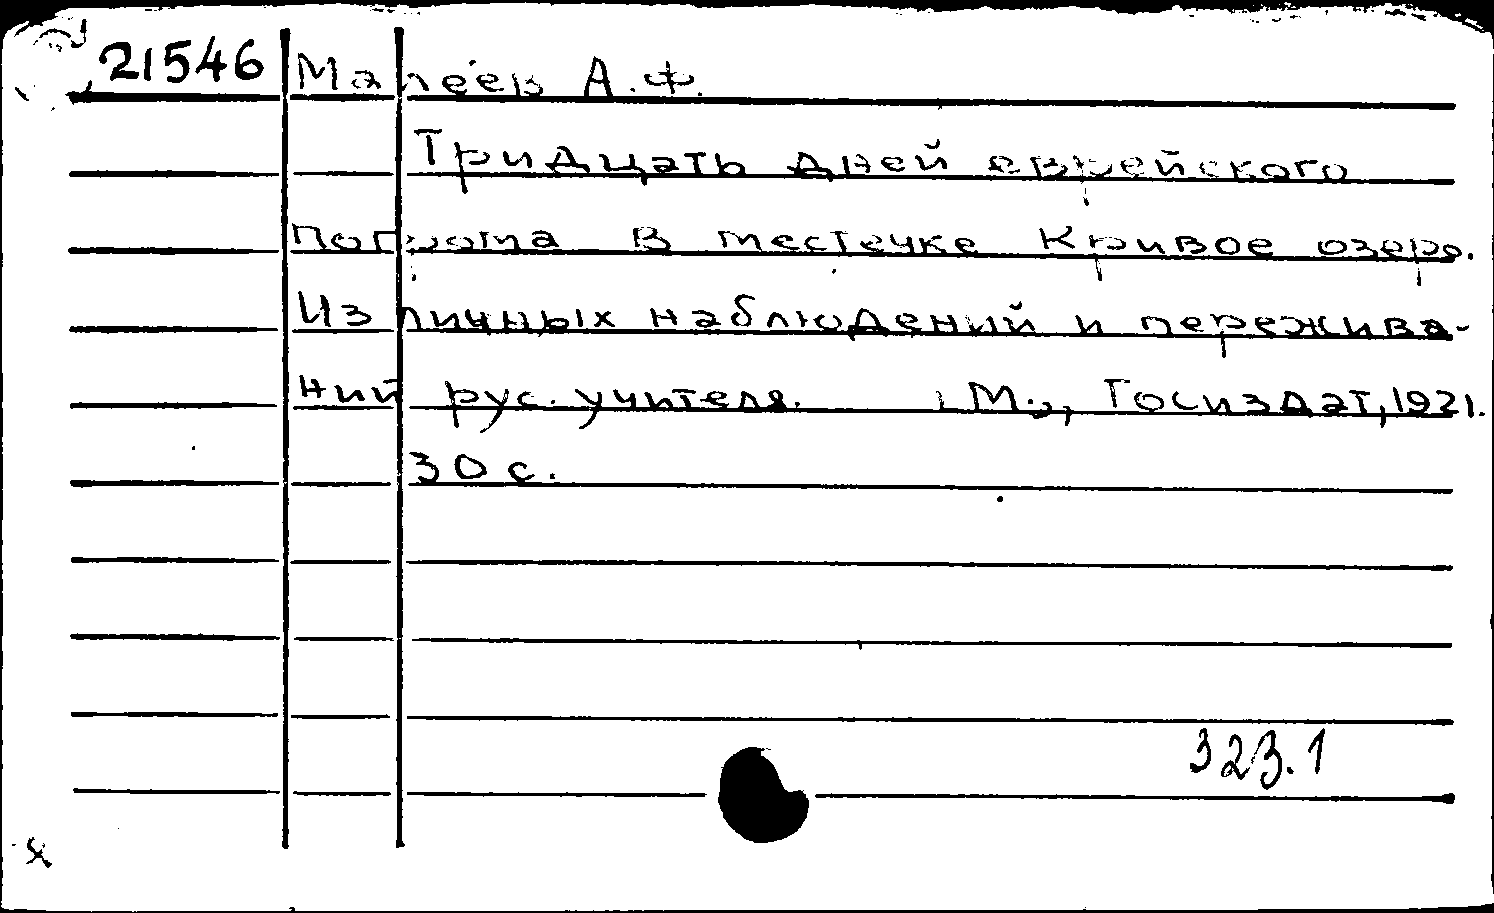 21546 Малеев А.Ф.
Тридцать дней еврейского
погрома в местечке Кривое озеро.
Из личных наблюдений и пережива-
ний рус. учителя. М., Госиздат, 1921.
30 с.
323.1